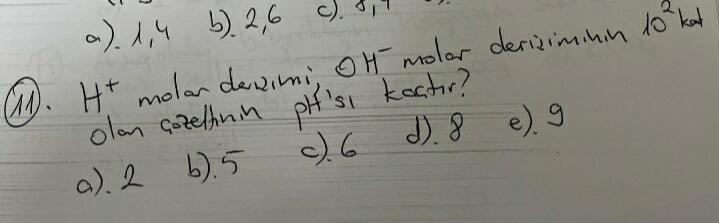 a). 1,4 b). 2,6 c). 8,4
11. H⁺ molar derizimi, OH⁻ molar deriziminin 10² kat
olan çözeltinin pH'sı kaçtır?
a). 2 b). 5 c). 6 d). 8 e). 9